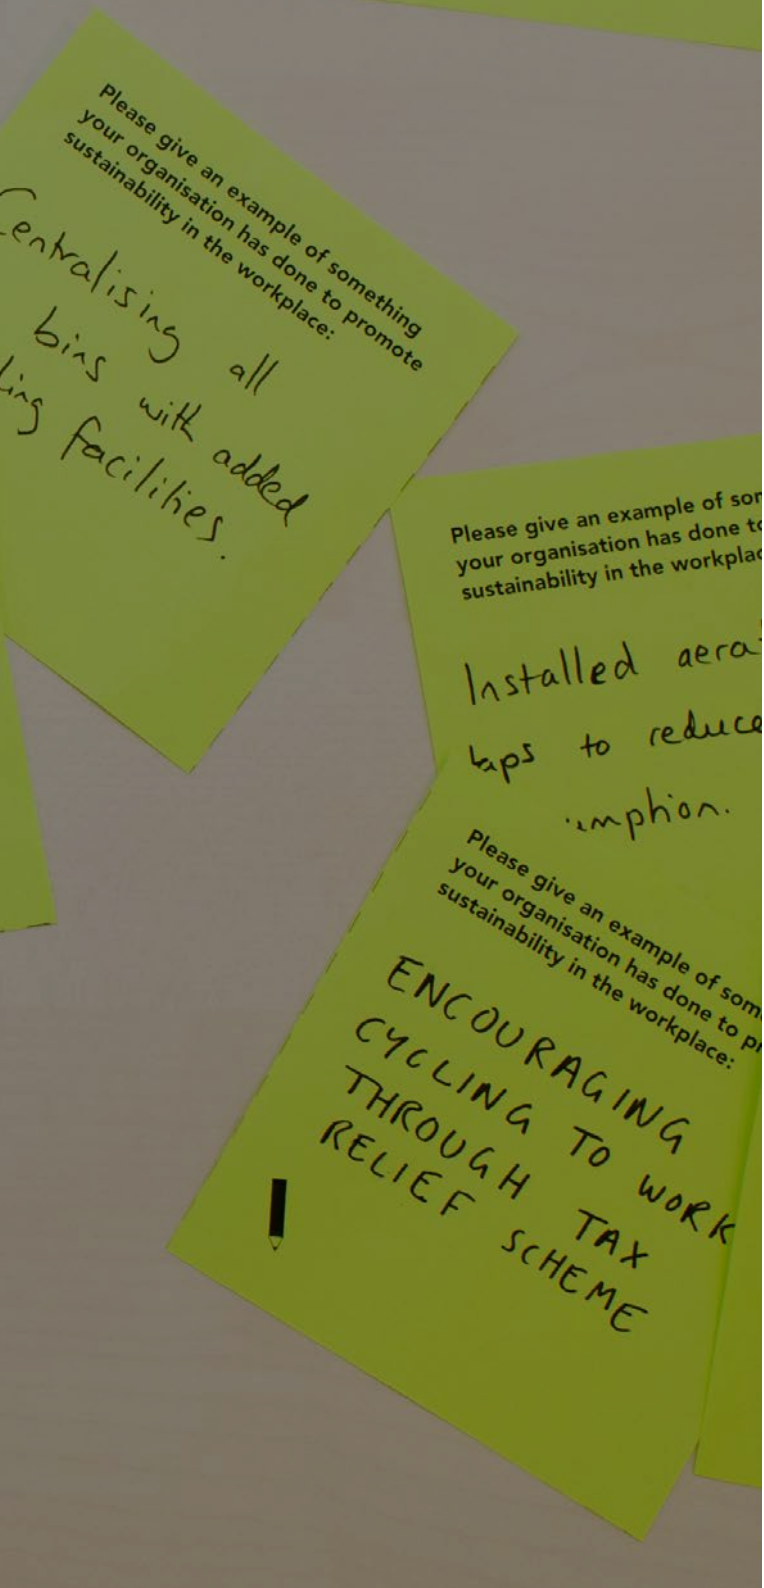 Please give an example of something
your organisation has done to promote
sustainability in the workplace:
Centralising all
bins with added
facilities.
Please give an example of
your organisation has done to
sustainability in the
Installed
taps to reduce
Please give an example of
your organisation has done to
sustainability in the workplace:
ENCOURAGING
CYCLING TO WORK
THROUGH TAX
RELIEF SCHEME